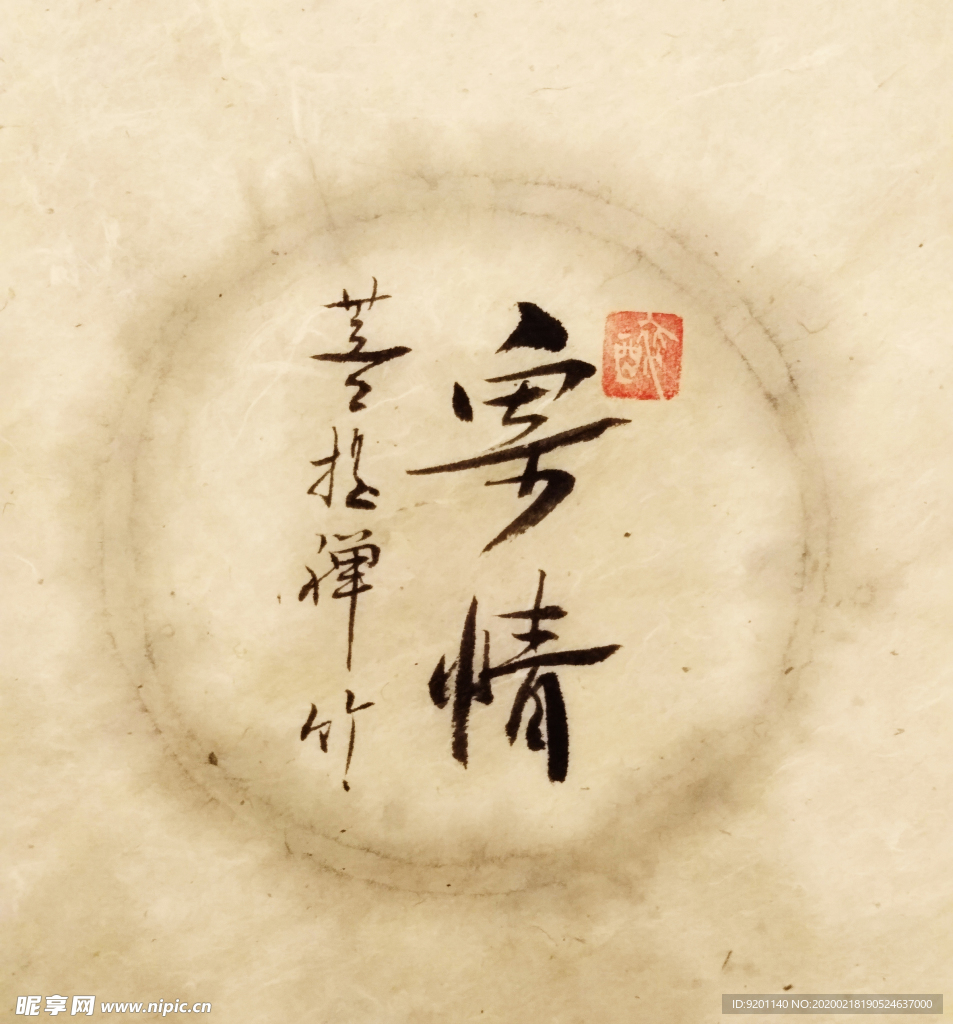 寡情
菩提禅竹
昵享网 www.nipic.cn
ID:9201140 NO:20200218190524637000